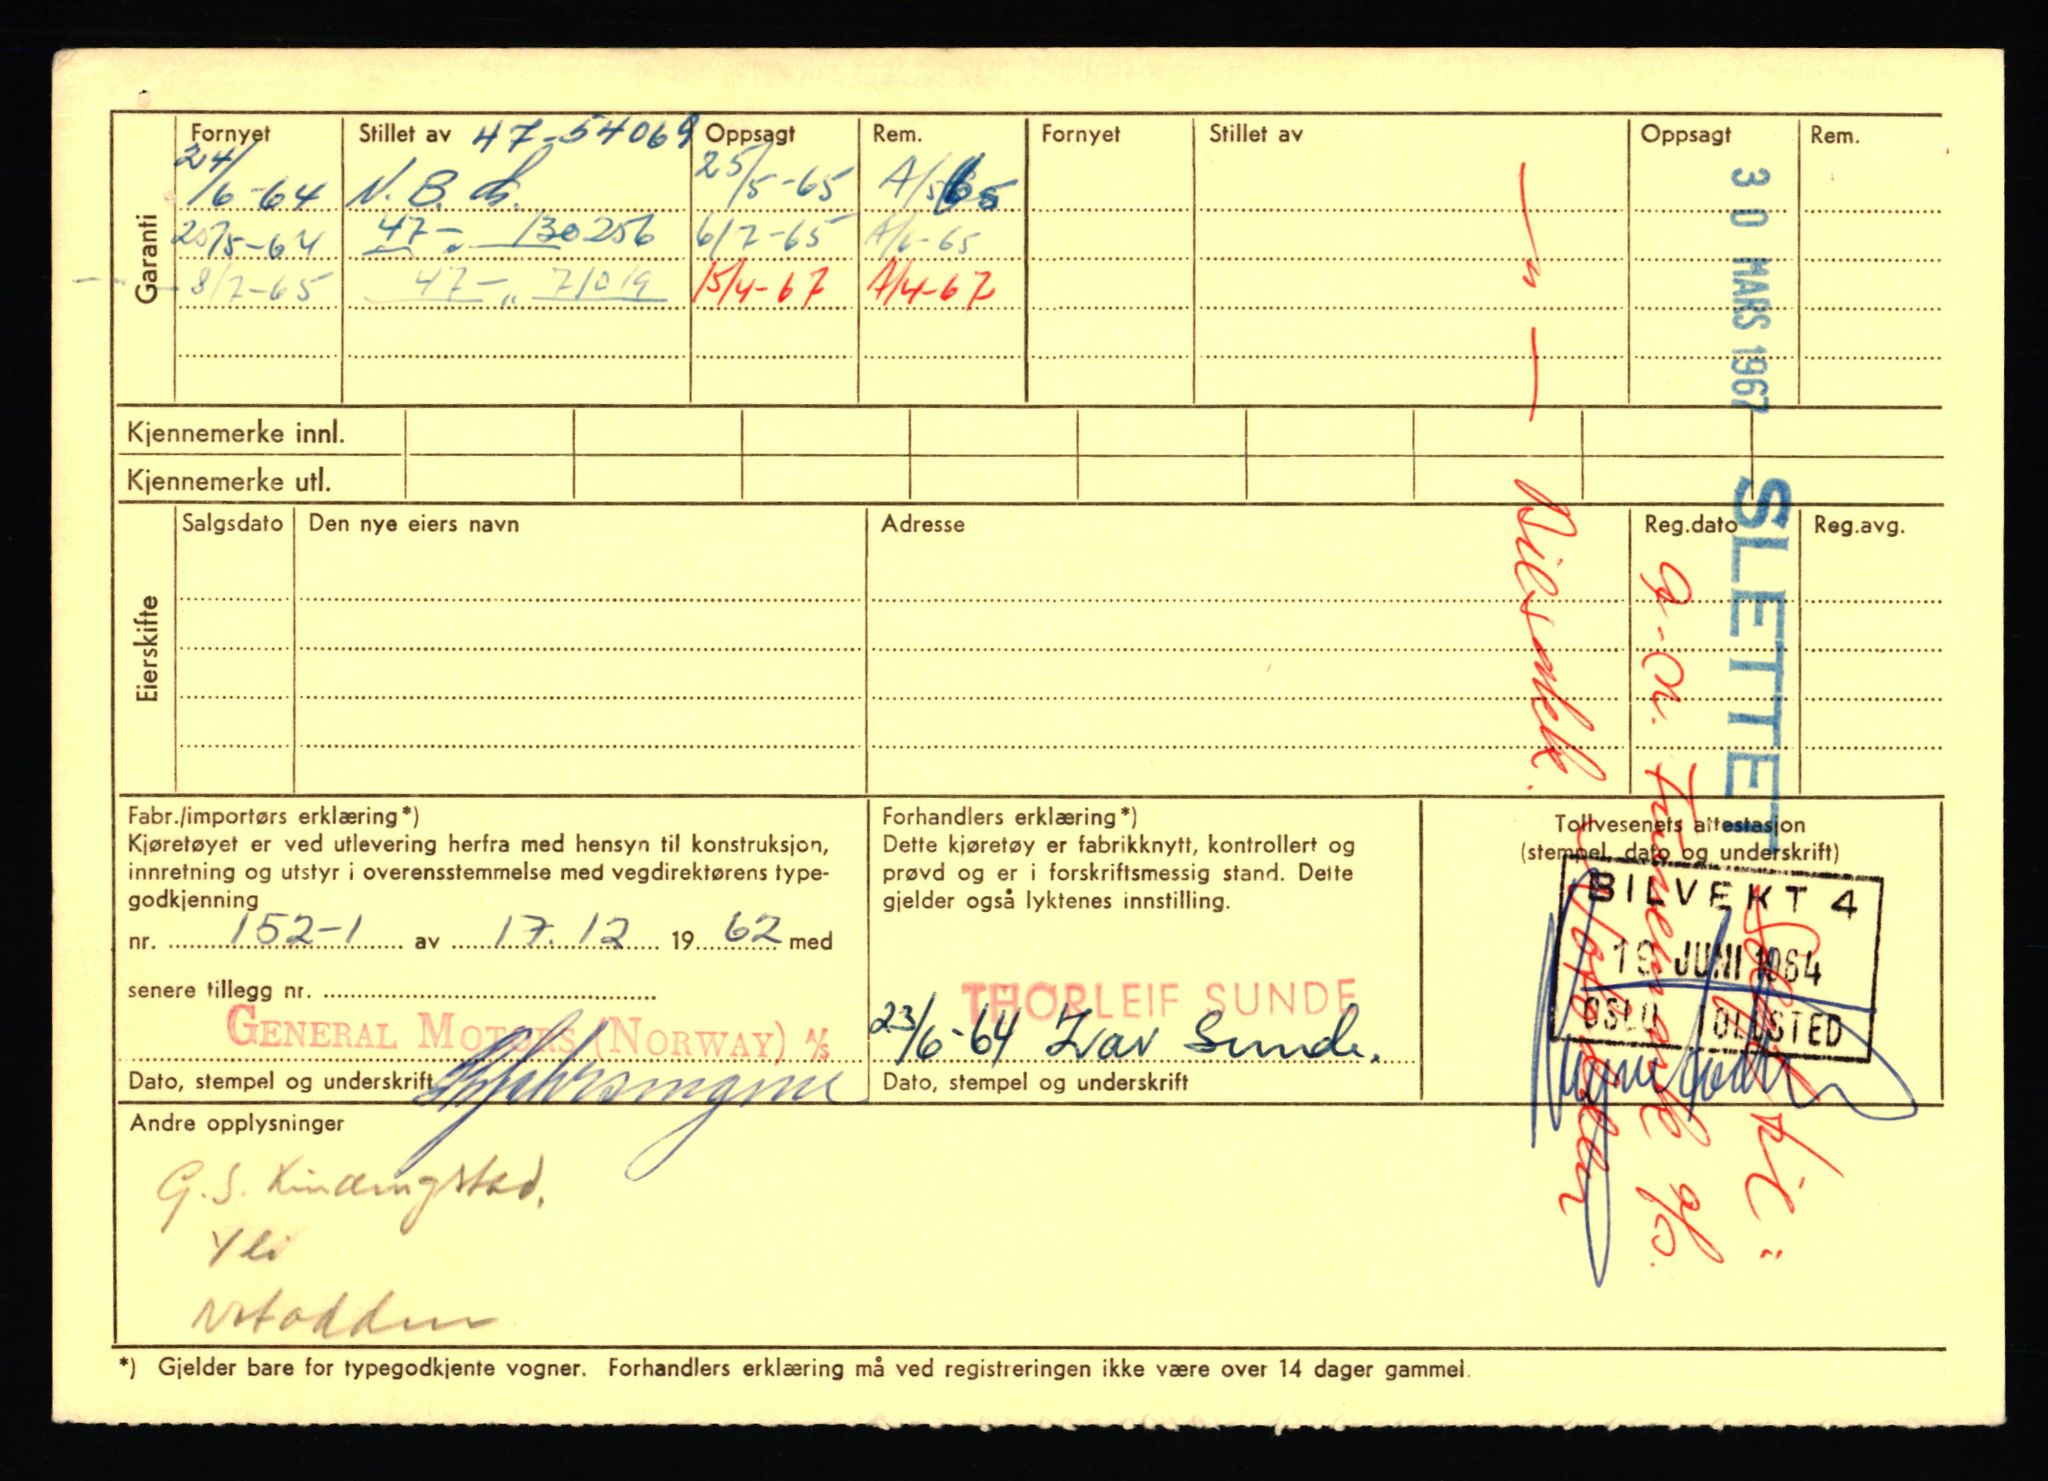 Garanti
Fornyet Stillet av 47-54069 Oppsagt Rem. Fornyet Stillet av Oppsagt Rem.
24/6-64 N.B. 25/5-65 A/5 65
20/5-64 47 - „ 130256 6/7-65 A/6-65
8/7-65 47 - „ 71019 15/4-67 A/4-67
30 MARS 1967 SLETTET
— „ —
Kjennemerke innl.
Kjennemerke utl.
Eierskifte
Salgsdato Den nye eiers navn Adresse Reg.dato Reg.avg.
"Solgt til
Fabr./importørs erklæring*)
Kjøretøyet er ved utlevering herfra med hensyn til konstruksjon,
innretning og utstyr i overensstemmelse med vegdirektørens type-
godkjenning
nr. 152-1 av 17.12 1962 med
senere tillegg nr.
GENERAL MOTORS (NORWAY) A/S
Dato, stempel og underskrift
Forhandlers erklæring*)
Dette kjøretøy er fabrikknytt, kontrollert og
prøvd og er i forskriftsmessig stand. Dette
gjelder også lyktenes innstilling.
THORLEIF SUNDE
23/6-64 Ivar Sunde.
Dato, stempel og underskrift
Tollvesenets attestasjon
(stempel, dato og underskrift)
BILVEKT 4
19 JUNI 1964
OSLO TOLLSTED
Andre opplysninger
G.S. Kindingstad.
Yli
Notodden
*) Gjelder bare for typegodkjente vogner. Forhandlers erklæring må ved registreringen ikke være over 14 dager gammel.